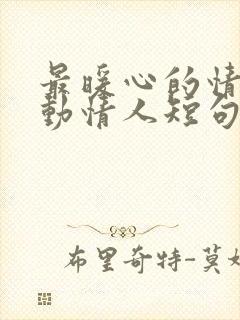 最暖心的情
動情人短句
布里奇特-莫